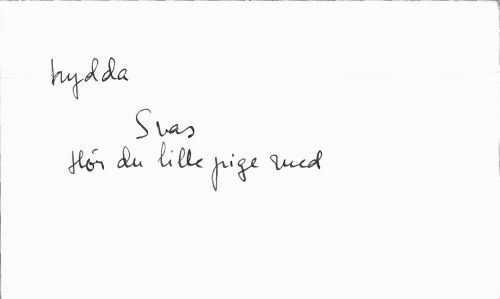 hydda
Svas
Hör du lille pige med